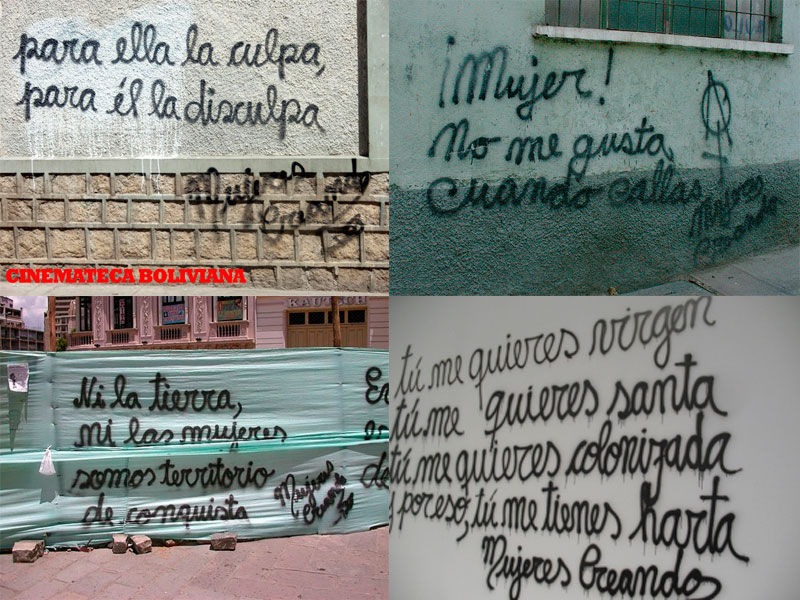 para ella la culpa,
para él la disculpa
Mujeres Creando
CINEMATECA BOLIVIANA
¡Mujer!
No me gusta
Cuando callas
Mujeres
Creando
KAUTSCH
Ni la tierra,
ni las mujeres
somos territorio
de conquista
Mujeres
Creando
En
de
tú me quieres virgen
tú me quieres santa
tú me quieres colonizada
y por eso, tú me tienes harta
Mujeres Creando